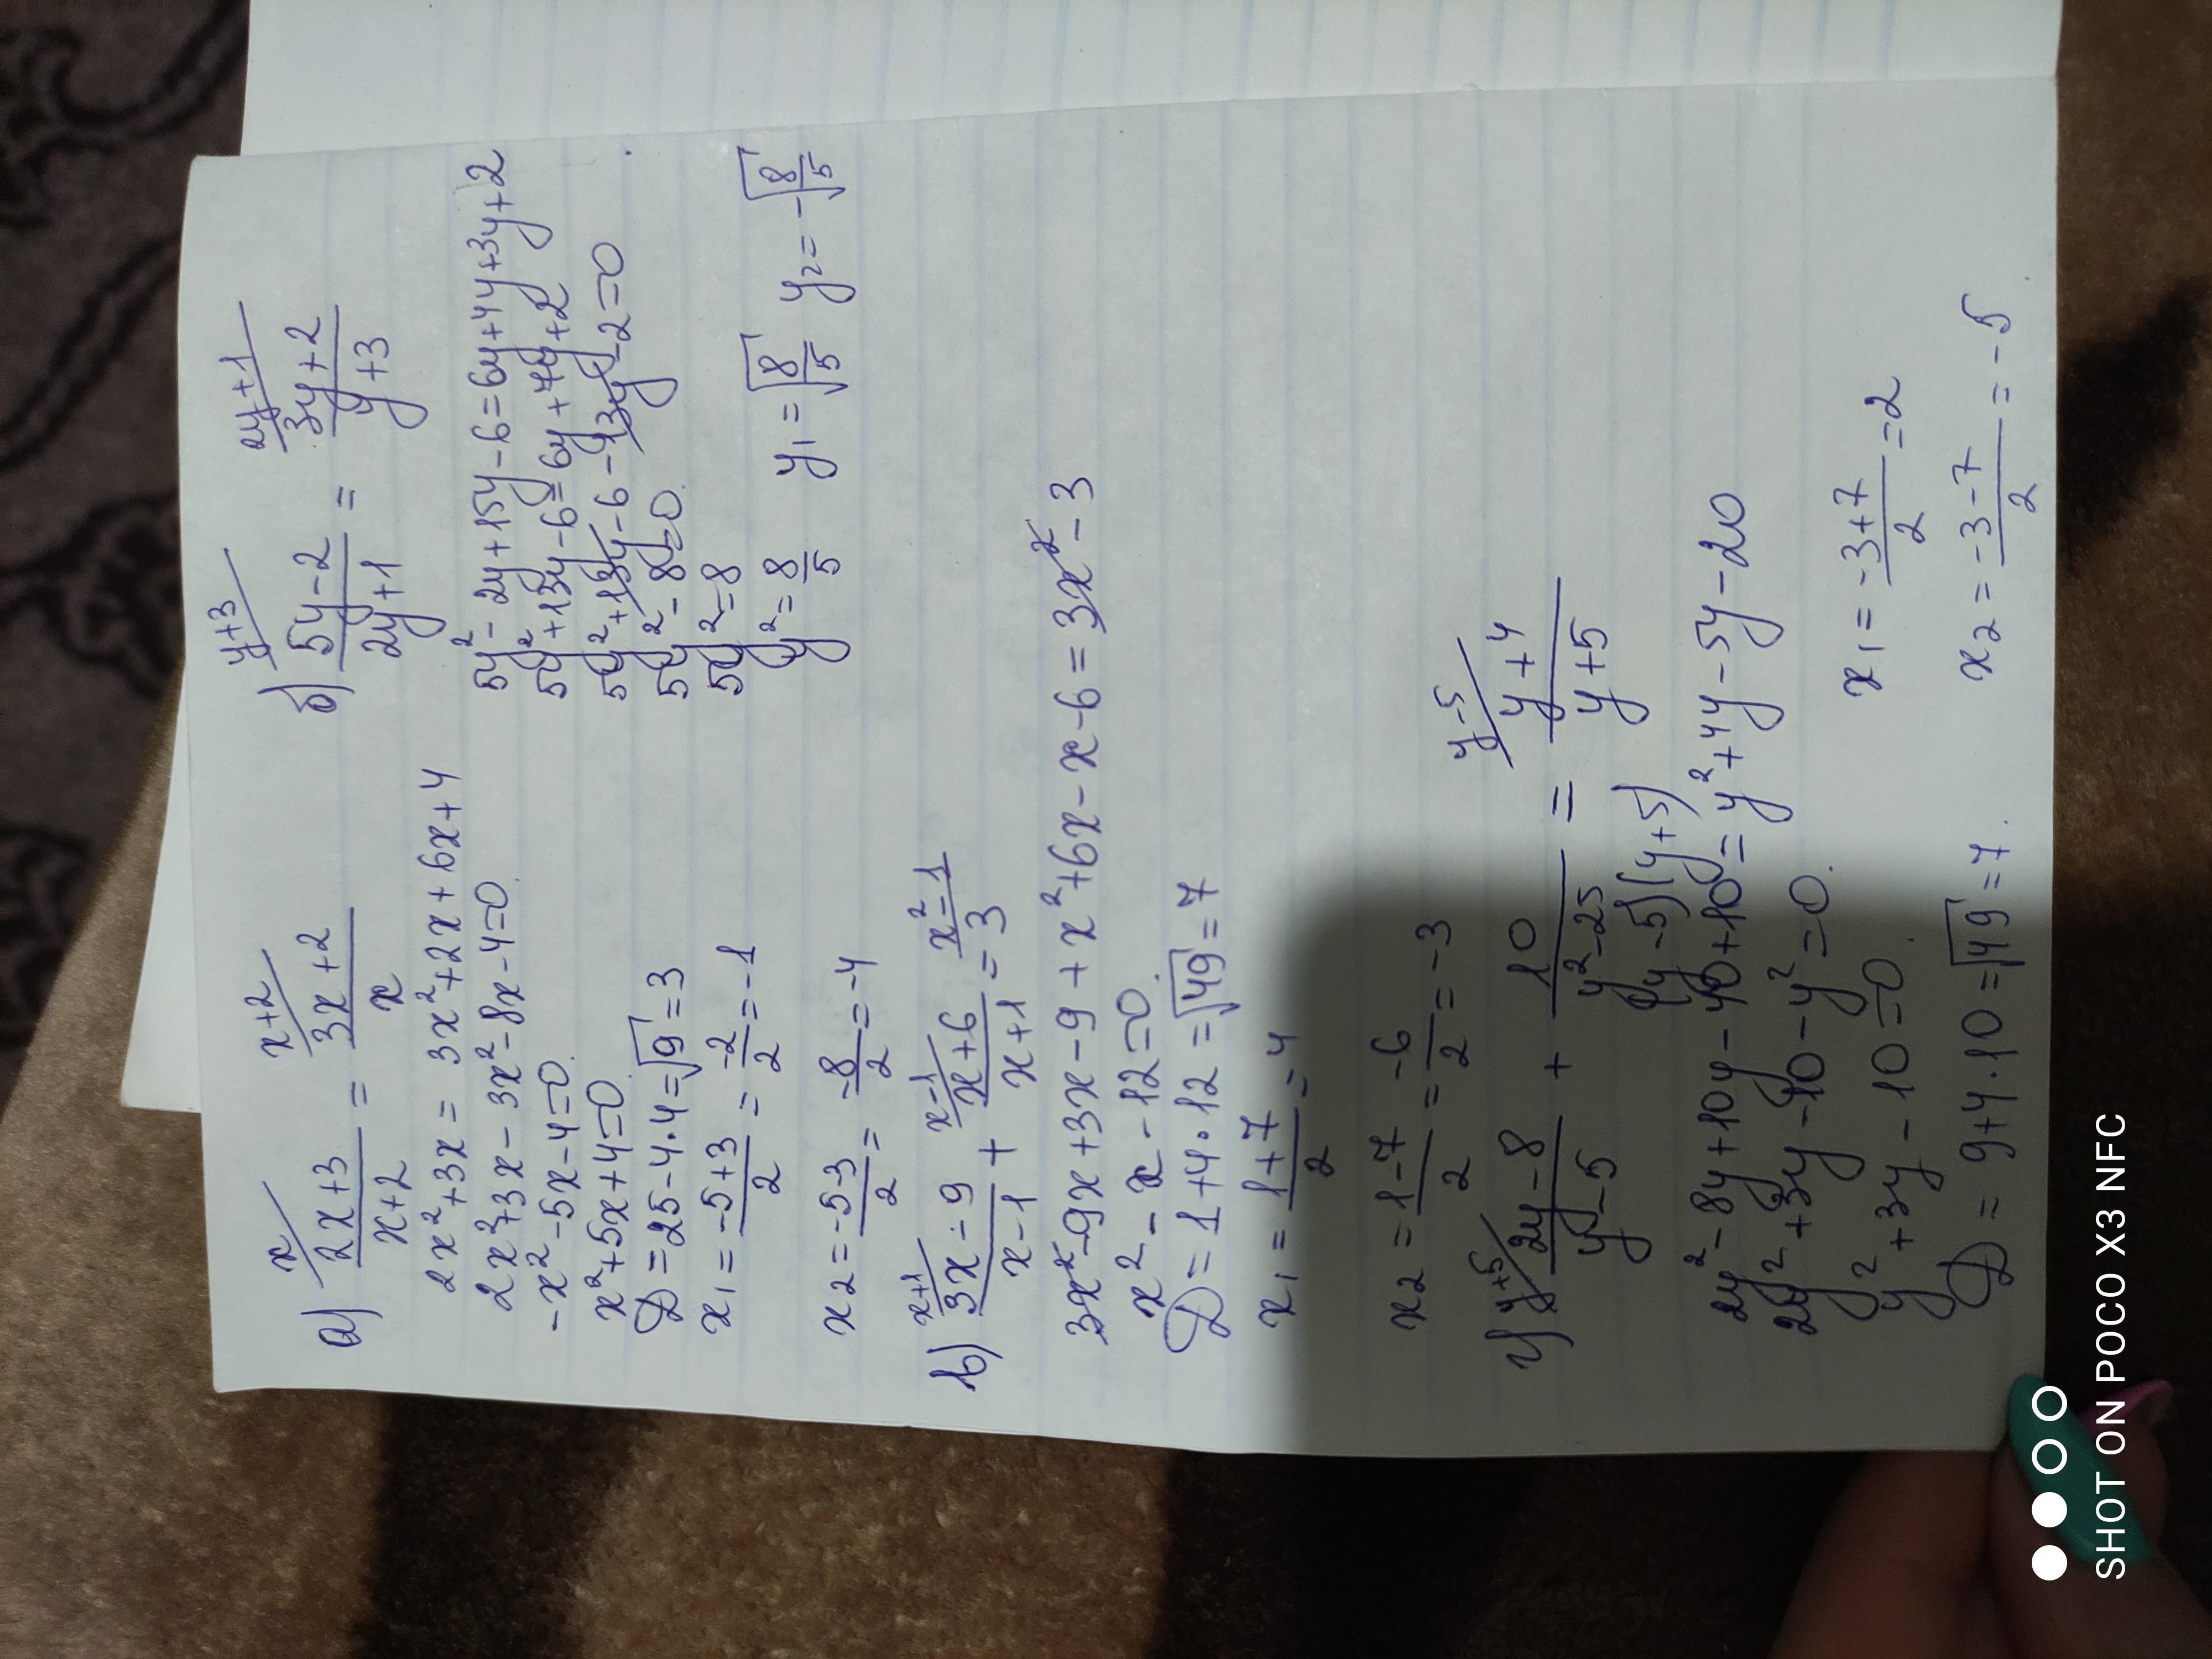 а) x/ (2x+3)/(x+2) = x+2/ (3x+2)/x
2x²+3x = 3x²+2x+6x+4
2x²+3x-3x²-8x-4=0
-x²-5x-4=0
x²+5x+4=0
D=25-4·4=√9=3
x₁ = (-5+3)/2 = -2/2 = -1
x₂ = (-5-3)/2 = -8/2 = -4
б) y+3/ (5y-2)/(2y+1) = 2y+1/ (3y+2)/(y+3)
5y²-2y+15y-6=6y+4y+3y+2
5y²+13y-6=6y+7y+2
5y²+13y-6-13y-2=0
5y²-8=0
5y²=8
y²=8/5 y₁=√(8/5) y₂=-√(8/5)
в) x+1/ (3x-9)/(x-1) + x-1/ (x+6)/(x+1) = x²-1/ 3
3x²-9x+3x-9+x²+6x-x-6=3x²-3
x²-x-12=0
D=1+4·12=√49=7
x₁ = (1+7)/2 = 4
x₂ = (1-7)/2 = -6/2 = -3
г) y+5/ (2y-8)/(y-5) + 10/(y²-25) = y-5/ (y+4)/(y+5)
(y-5)(y+5)
2y²-8y+10y-40+10=y²+4y-5y-20
2y²+3y-10-y²=0
y²+3y-10=0
D=9+4·10=√49=7
x₁ = (-3+7)/2 = 2
x₂ = (-3-7)/2 = -5
SHOT ON POCO X3 NFC